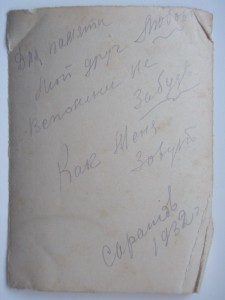 Для памяти
Мой друг Любой
Вспомни не
Забудь
Как Меня
Зовут
Саратов
1932 г